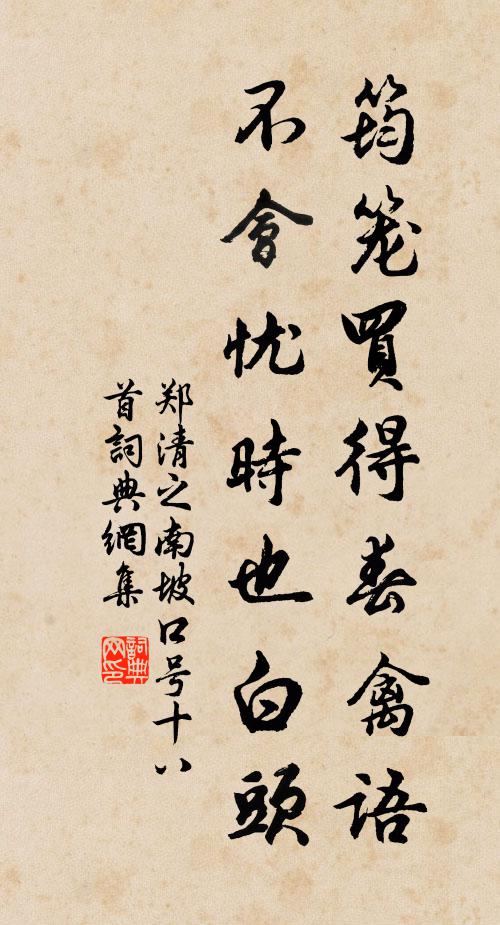 筠笼買得春禽語
不會忧時也白頭
郑清之南坡口号十八
首詞典網集
詞典
网印